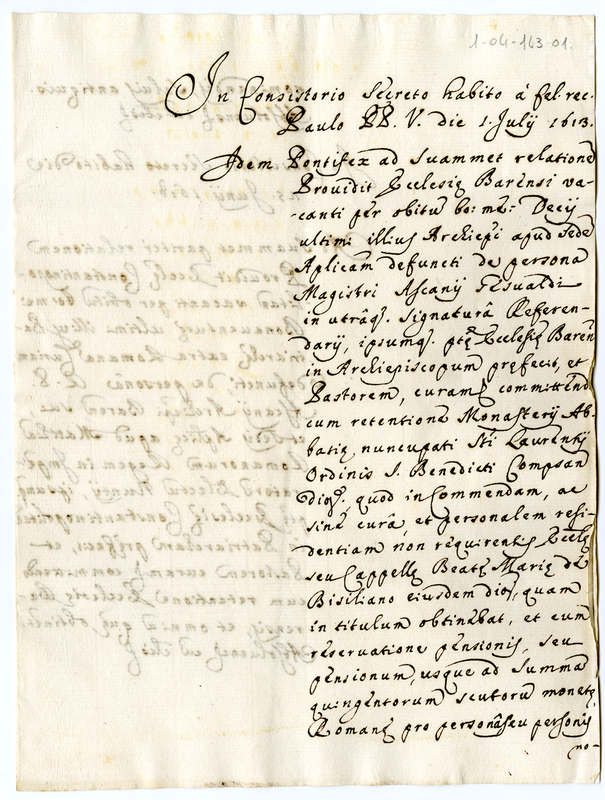 1-04-143-01.
In Consistorio Secreto habito à fel. rec.
Paulo PP. V. die 1. Julij 1613.
Idem Pontifex ad suammet relatione
Providit Ecclesię Barensi va-
-canti per obitũ bo: me: Decij
ultimi illius Archiepi apud Sede
Aplicam defuncti de persona
Magistri Ascanij Gesualdi
in utràq. signaturâ Referen-
darij, ipsumq. ptę Ecclesię Baren
in Archiepiscopum pręfecit, et
Pastorem, curam committend
cum retentione Monasterij Ab-
batię nuncupati Sti Laurentij
Ordinis S. Benedicti Compsan
dioę. quod in Commendam, ac
sine curâ, et personalem resi-
dentiam non requirentis Eccłę
seu Cappellę Beatę Marię de
Bisiliano eiusdem dioę, quam
in titulum obtinebat, et cum
reservatione pensionis, seu
pensionum, usque ad summã
quingentorum scutorũ monetę
Romanę pro personâ seu personis
no-